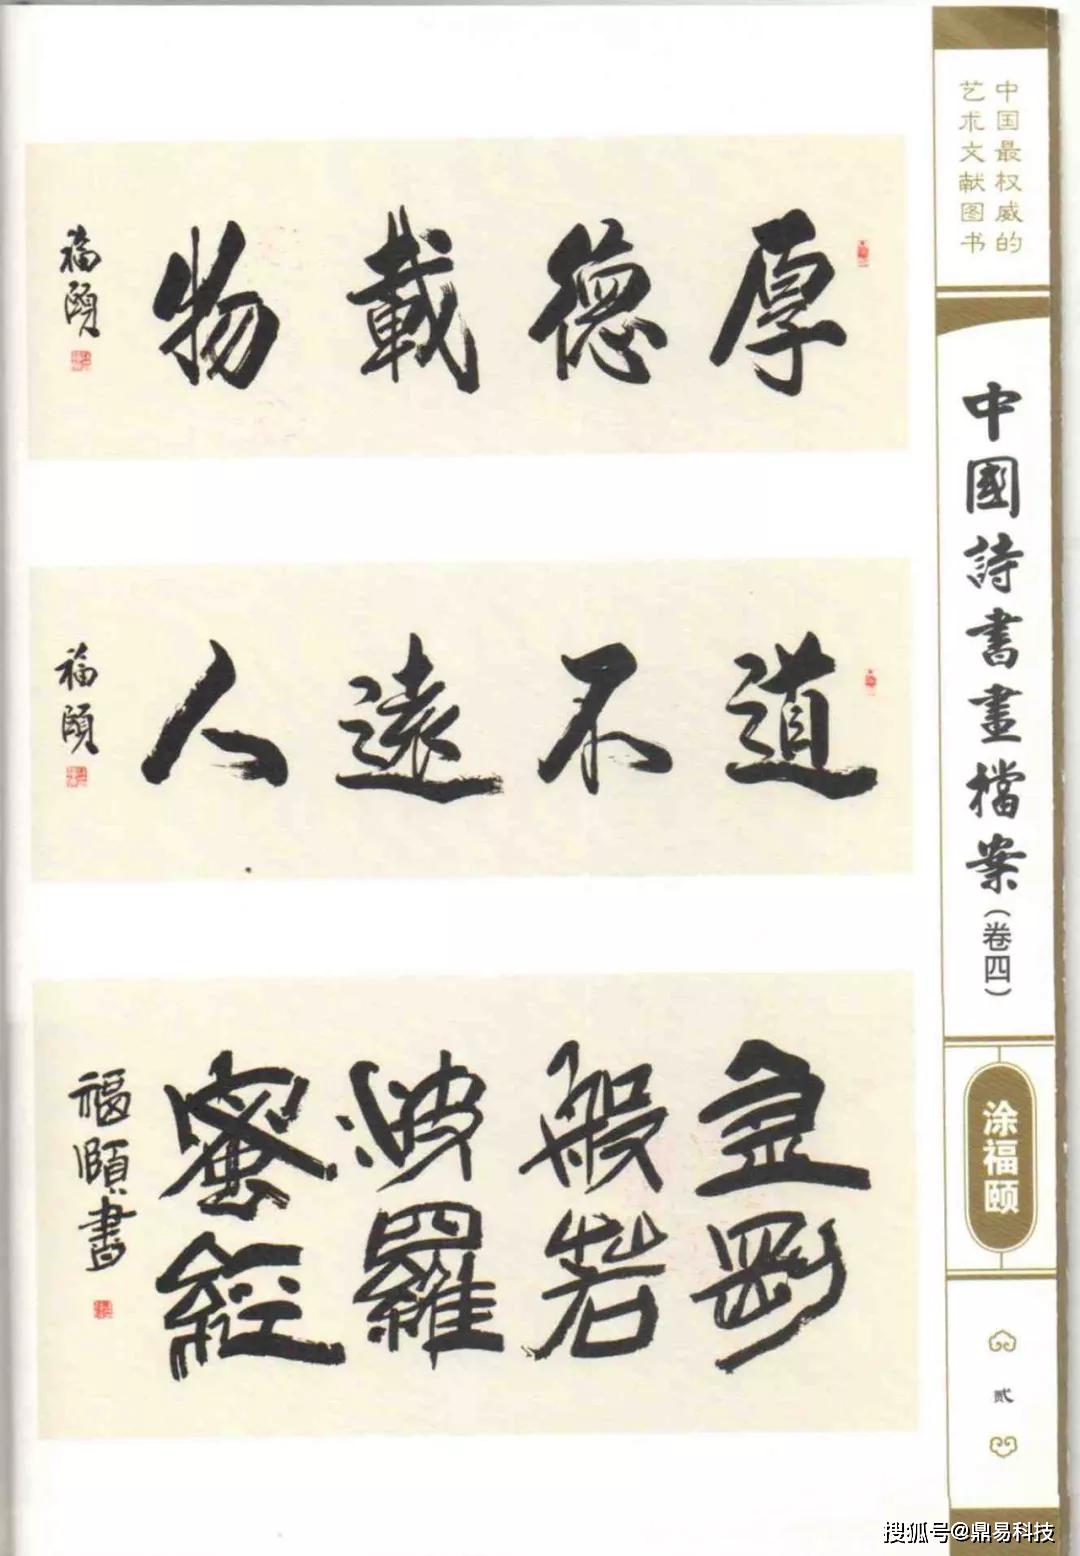 厚德載物
福頤
道不遠人
福頤
金剛
般若
波羅
蜜經
福頤書
中国最权威的
艺术文献图书
中國詩書畫檔案(卷四)
涂福颐
贰
搜狐号@鼎易科技